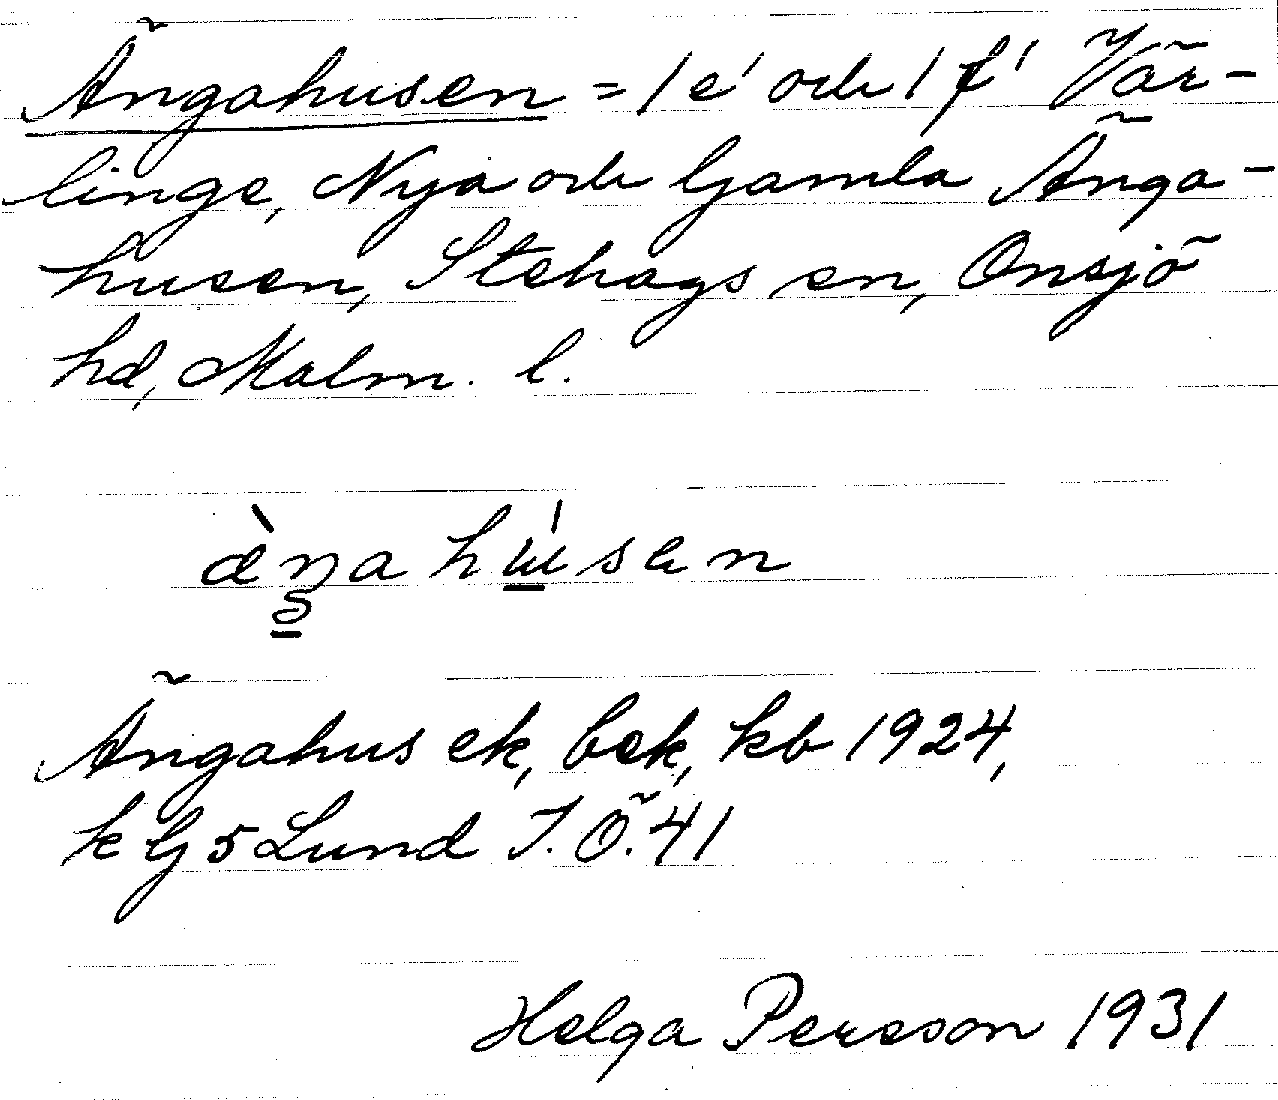 Ängahusen = 1 e' och 1 f' Vär-
linge, Nya och Gamla Änga-
husen, Stehags sn, Onsjö
hd, Malm. l.
Ängahus ek, bek, kb 1924,
k G 5 Lund J.Ö. 41
Helga Persson 1931